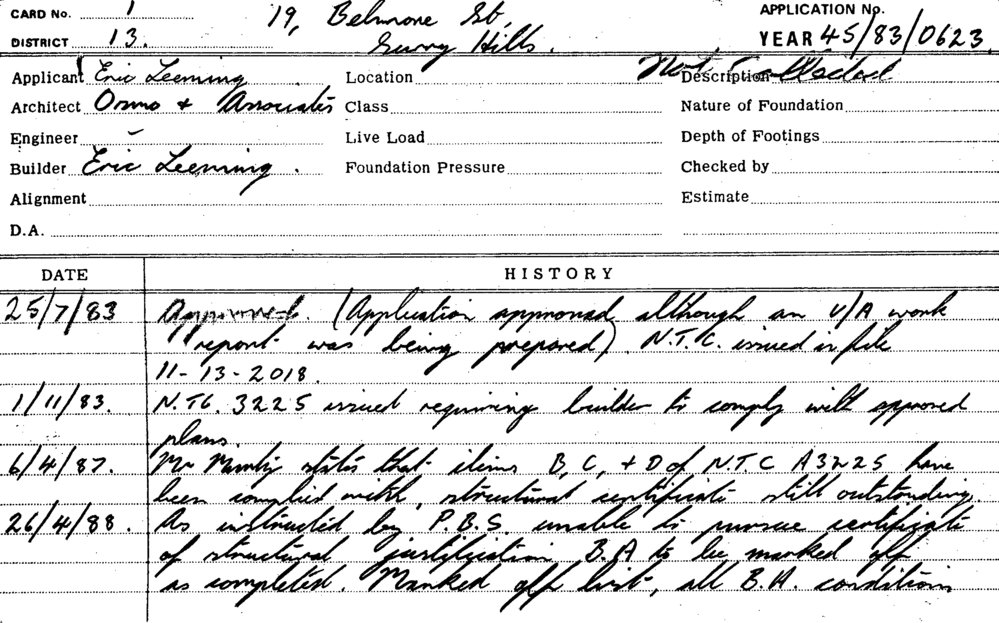 CARD No. 1 19, Belmore St, APPLICATION No.
DISTRICT 13. Surry Hills. YEAR 45/83/0623
Applicant Eric Leeming Location Description Not Collected
Architect Ormo + Associates Class Nature of Foundation
Engineer - Live Load Depth of Footings
Builder Eric Leeming. Foundation Pressure Checked by
Alignment Estimate
D.A.
DATE HISTORY
25/7/83 Approved. (Application approved although an U/A work
report was being prepared). N.T.C. issued in file
11-13-2018.
1/11/83. N.T.C. 3225 issued requiring builder to comply with approved
plans.
6/4/87. Mr states that items B, C, + D of N.T.C A3225 have
been complied with, structural certificate still outstanding.
26/4/88. As instructed by P.B.S unable to pursue certificate
of structural justification B.A to be marked off
as completed. Marked off list, all B.A. condition